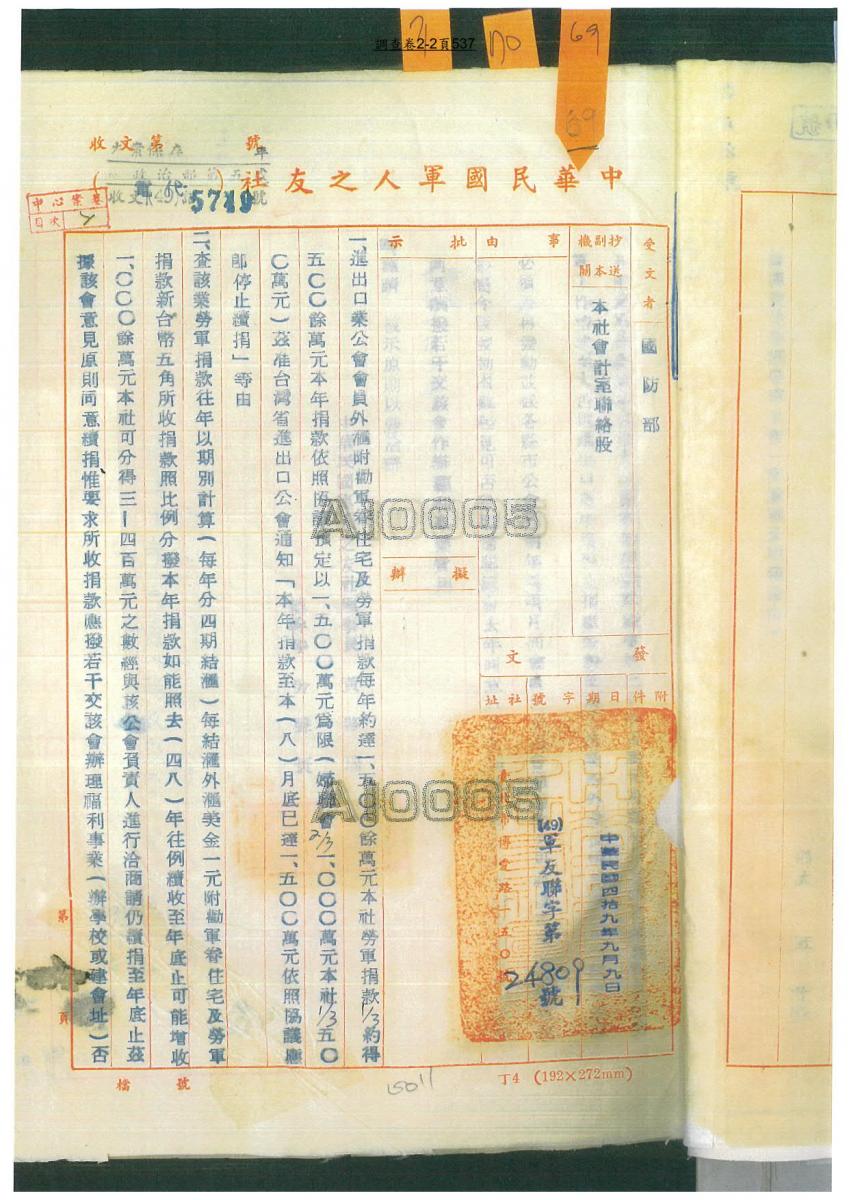 調查卷2-2頁537
no
69
69
收文第 號
5749
中華民國軍人之友社（代電）
中心檔案
目次
受文者
國防部
抄送副本機關
本社會計室聯絡股
事由
批示
擬辦
發文
附件
日期
字號
社址
中華民國四拾九年九月九日
(49)軍友聯字第24809號
博愛路一五〇號
一、進出口業公會會員外滙附勸軍眷住宅及勞軍捐款每年約達一、五〇〇餘萬元本社勞軍捐款1/3約得
五〇〇餘萬元本年捐款依照協議預定以一、五〇〇萬元爲限（婦聯會2/3一、〇〇〇萬元本社1/3五〇
〇萬元）茲准台灣省進出口公會通知「本年捐款至本（八）月底已達一、五〇〇萬元依照協議應
卽停止續捐」等由
二、查該業勞軍捐款往年以期別計算（每年分四期結滙）每結滙外滙美金一元附勸軍眷住宅及勞軍
捐款新台幣五角所收捐款照比例分撥本年捐款如能照去（四八）年往例續收至年底止可能增收
一、〇〇〇餘萬元本社可分得三—四百萬元之數經與該公會負責人進行洽商請仍續捐至年底止茲
據該會意見原則同意續捐惟要求所收捐款應撥若干交該會辦理福利事業（辦學校或建會址）否
第 頁
檔 號
丁4 (192×272mm)
AI0005
AI0005